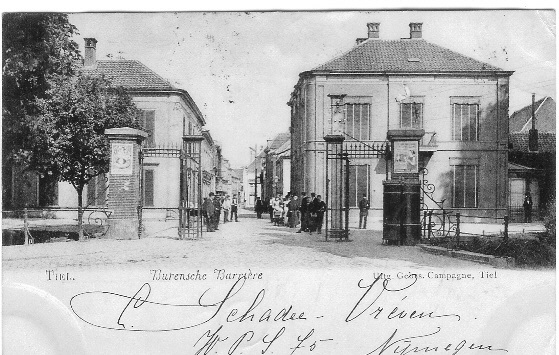 TIEL. Burensche Barrière Uitg Gebrs. Campagne, Tiel
C. Schadee Vréven
W.P.S. 75 Nijmegen